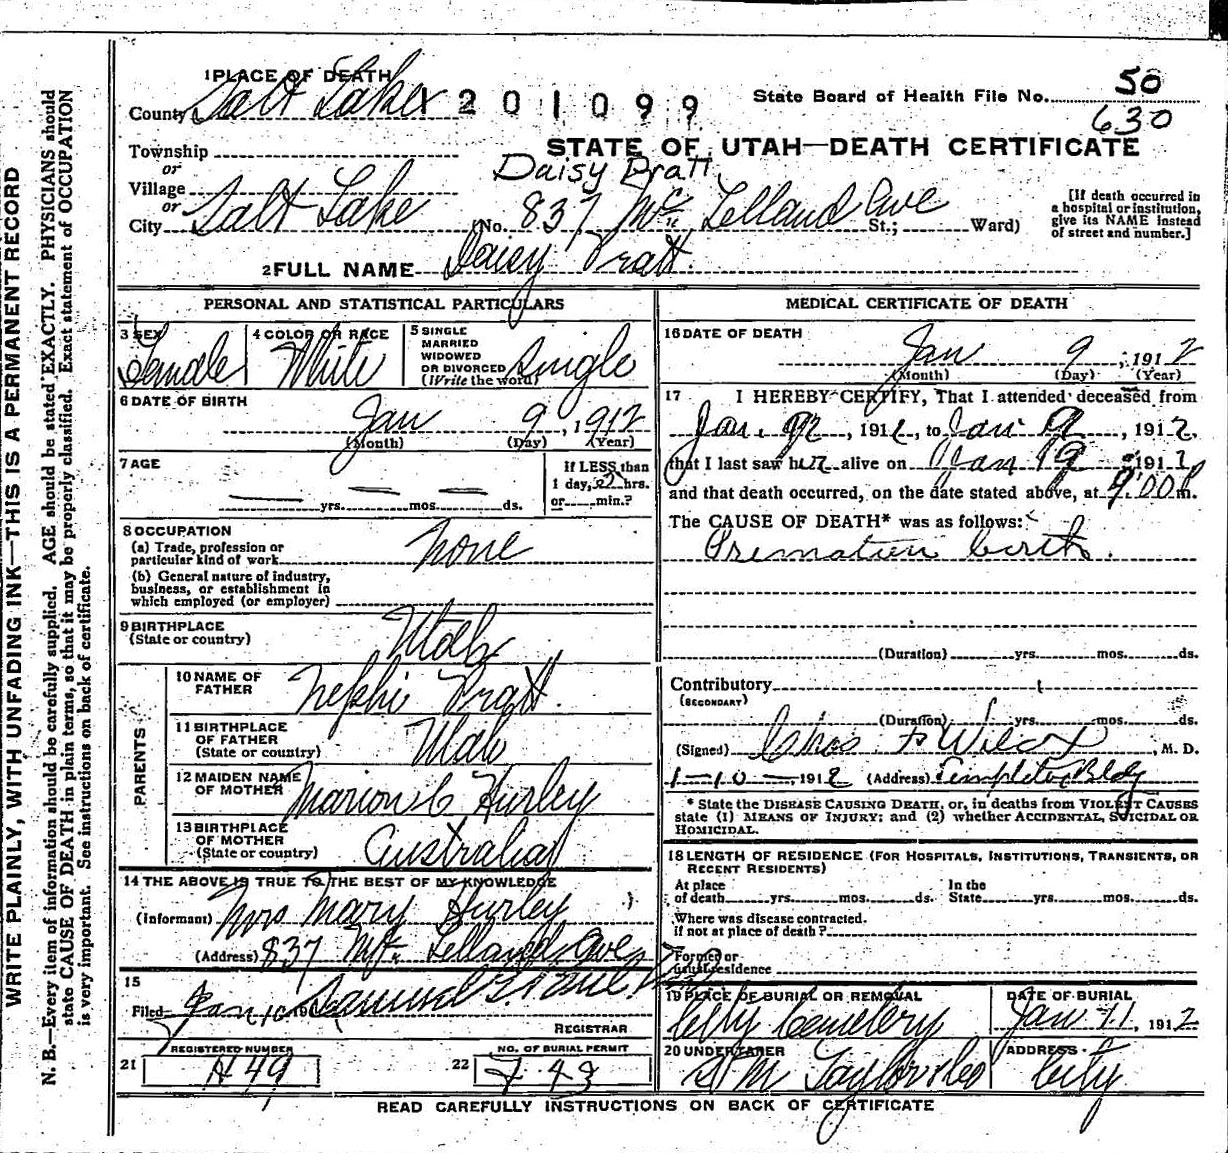 WRITE PLAINLY, WITH UNFADING INK—THIS IS A PERMANENT RECORD
N. B.—Every item of information should be carefully supplied. AGE should be stated EXACTLY. PHYSICIANS should
state CAUSE OF DEATH in plain terms, so that it may be properly classified. Exact statement of OCCUPATION
is very important. See instructions on back of certificate.
1 PLACE OF DEATH
County Salt Lake
1201099
State Board of Health File No. 50
630
Township
or
Village
or
City Salt Lake
STATE OF UTAH—DEATH CERTIFICATE
Daisy Pratt
(No. 837 Mc Lelland Ave St.; Ward)
[If death occurred in
a hospital or institution,
give its NAME instead
of street and number.]
2 FULL NAME Daisy Pratt
PERSONAL AND STATISTICAL PARTICULARS
3 SEX Female
4 COLOR OR RACE White
5 SINGLE
MARRIED
WIDOWED
OR DIVORCED
(Write the word) Single
6 DATE OF BIRTH
Jan 9, 1912
(Month) (Day) (Year)
7 AGE
— yrs. — mos. — ds.
If LESS than
1 day, hrs.
or min.?
8 OCCUPATION
(a) Trade, profession or
particular kind of work None
(b) General nature of industry,
business, or establishment in
which employed (or employer)
9 BIRTHPLACE
(State or country) Utah
PARENTS
10 NAME OF
FATHER Nephi Pratt
11 BIRTHPLACE
OF FATHER
(State or country) Utah
12 MAIDEN NAME
OF MOTHER Marion C Hurley
13 BIRTHPLACE
OF MOTHER
(State or country) Australia
14 THE ABOVE IS TRUE TO THE BEST OF MY KNOWLEDGE
(Informant) Mrs Mary Hurley
(Address) 837 Mc Lelland Ave
15
Filed Jan 10 191 Samuel G. Paul
REGISTRAR
21 REGISTERED NUMBER
A 49
22 NO. OF BURIAL PERMIT
743
MEDICAL CERTIFICATE OF DEATH
16 DATE OF DEATH
Jan 9, 1912
(Month) (Day) (Year)
17 I HEREBY CERTIFY, That I attended deceased from
Jan. 9, 1912, to Jan 9, 1912,
that I last saw her alive on Jan 9 1912
and that death occurred, on the date stated above, at 9:00 P m.
The CAUSE OF DEATH* was as follows:
Premature birth.
(Duration) yrs. mos. ds.
Contributory
(SECONDARY)
(Duration) yrs. mos. ds.
(Signed) Chas F Wilcox, M. D.
1-10-, 1912 (Address) Templeton Bldg
* State the DISEASE CAUSING DEATH, or, in deaths from VIOLENT CAUSES
state (1) MEANS OF INJURY; and (2) whether ACCIDENTAL, SUICIDAL OR
HOMICIDAL.
18 LENGTH OF RESIDENCE (FOR HOSPITALS, INSTITUTIONS, TRANSIENTS, OR
RECENT RESIDENTS)
At place
of death yrs. mos. ds.
In the
State yrs. mos. ds.
Where was disease contracted.
if not at place of death?
Former or
usual residence
19 PLACE OF BURIAL OR REMOVAL
City Cemetery
DATE OF BURIAL
Jan 11, 1912
20 UNDERTAKER
S M Taylor & Co
ADDRESS
City
READ CAREFULLY INSTRUCTIONS ON BACK OF CERTIFICATE